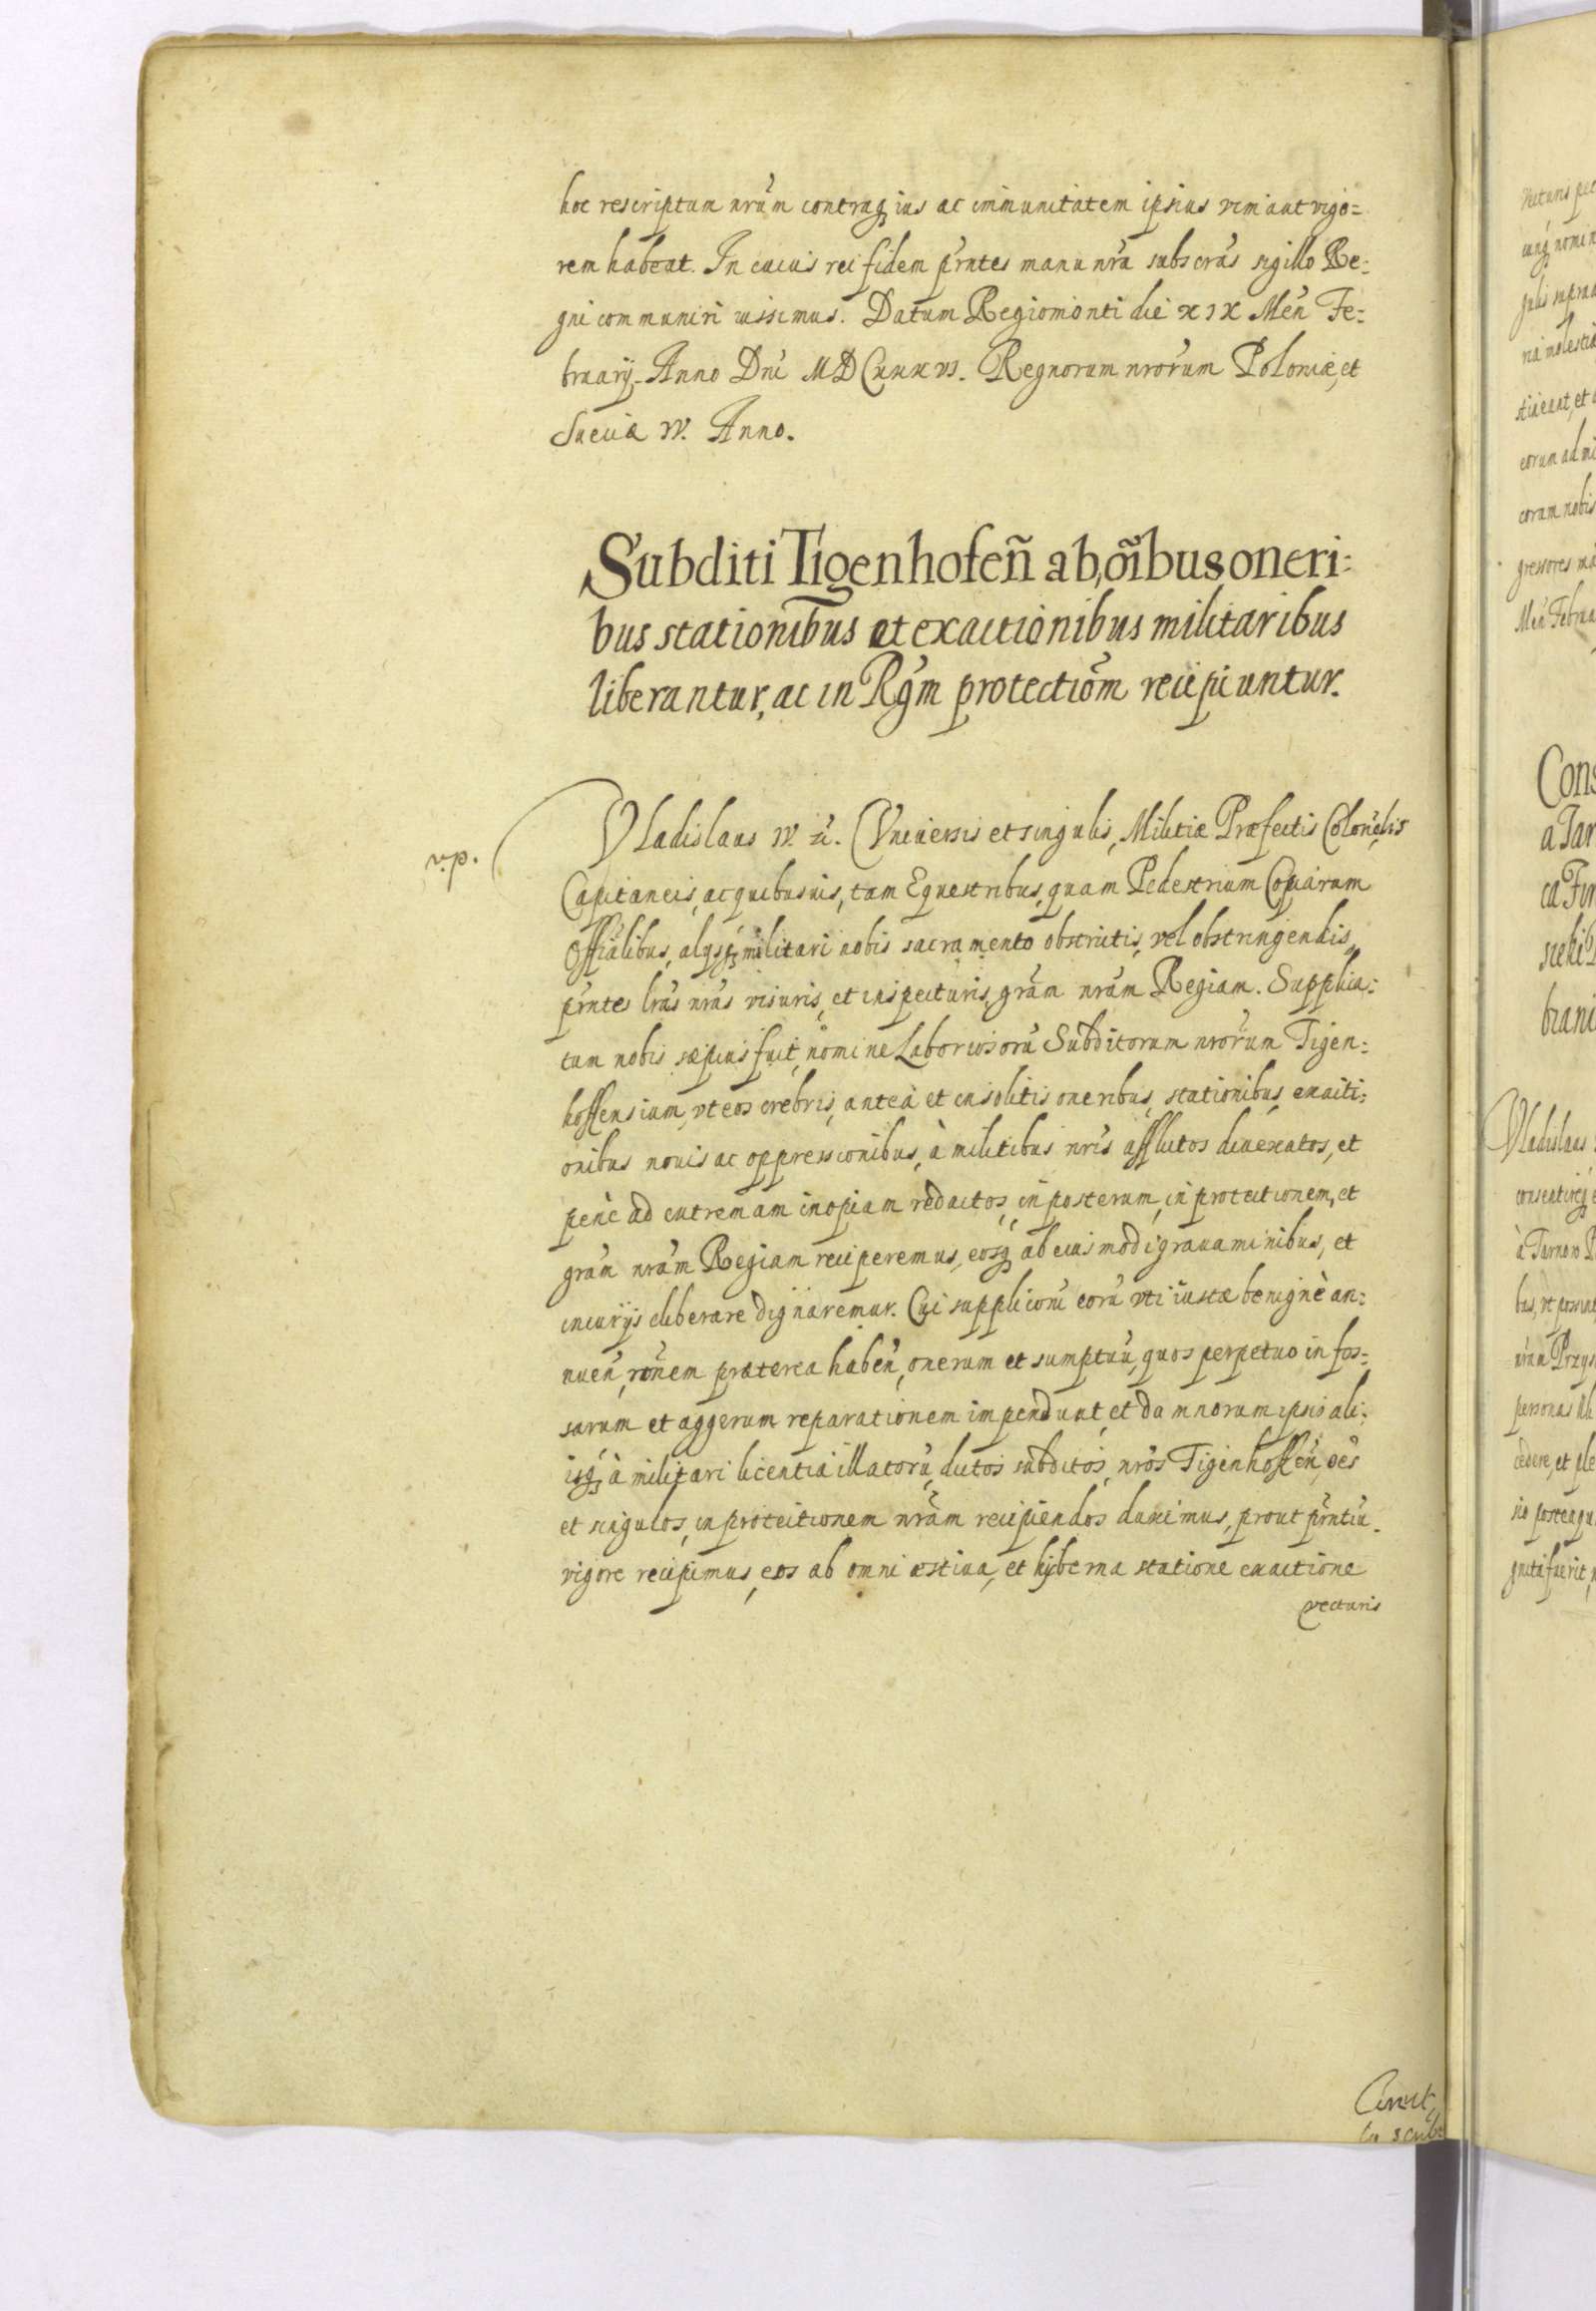 hoc rescriptum nr̃um contraq; ius ac immunitatem ipsius vim aut vigo=
rem habeat. In cuius rei fidem pr̃ntes manu nr̃a subscr̃as sigillo Re=
gni communiri iussimus. Datum Regiomonti die xix Men̄ Fe=
bruarij. Anno Dn̄i MDCxxxvi. Regnorum nr̃orum Poloniæ, et
Sueciæ IV. Anno.
Subditi Tigenhofeñ ab oĩbus oneri=
bus stationibus et exactionibus militaribus
liberantur, ac in Rg̃m protectiõm recipiuntur.
v.p.
Vladislaus IV. &. Vniuersis et singulis, Militiæ Præfectis Colonelis
Capitaneis, ac quibusuis, tam Equestribus, quam Pedestrium Copiarum
Officialibus, alijsq; militari nobis sacramento obstrictis, vel obstringendis,
pr̃ntes lr̃as nr̃as visuris, et inspecturis, gr̃am nr̃am Regiam. Supplica=
tum nobis sæpius fuit, nomine Laboriosorũ Subditorum nr̃orum Tigen=
hoffensium, vt eos crebris, anteà et insolitis oneribus, stationibus, exacti=
onibus nouis ac oppressionibus, à militibus nr̃is afflictos diuexatos, et
penè ad extremam inopiam redactos, in posterum, in protectionem, et
gr̃am nr̃am Regiam reciperemus, eosq; ab eiusmodi grauaminibus, et
iniurijs liberare dignaremur. Cui supplicõni eorũ vti iustæ benignè an=
nueñ, rõnem præterea habeñ, onerum et sumptuũ, quos perpetuo in fos=
sarum et aggerum reparationem impendunt, et damnorum ipsis ali=
isq; à militari licentia illatorũ, dictos subditos nr̃os Tigenhoffeñ, oẽs
et singulos, in protectionem nr̃am recipiendos duximus, prout pr̃ntiũ
vigore recipimus, eos ab omni æstiua, et hyberna statione exactione
vecturis